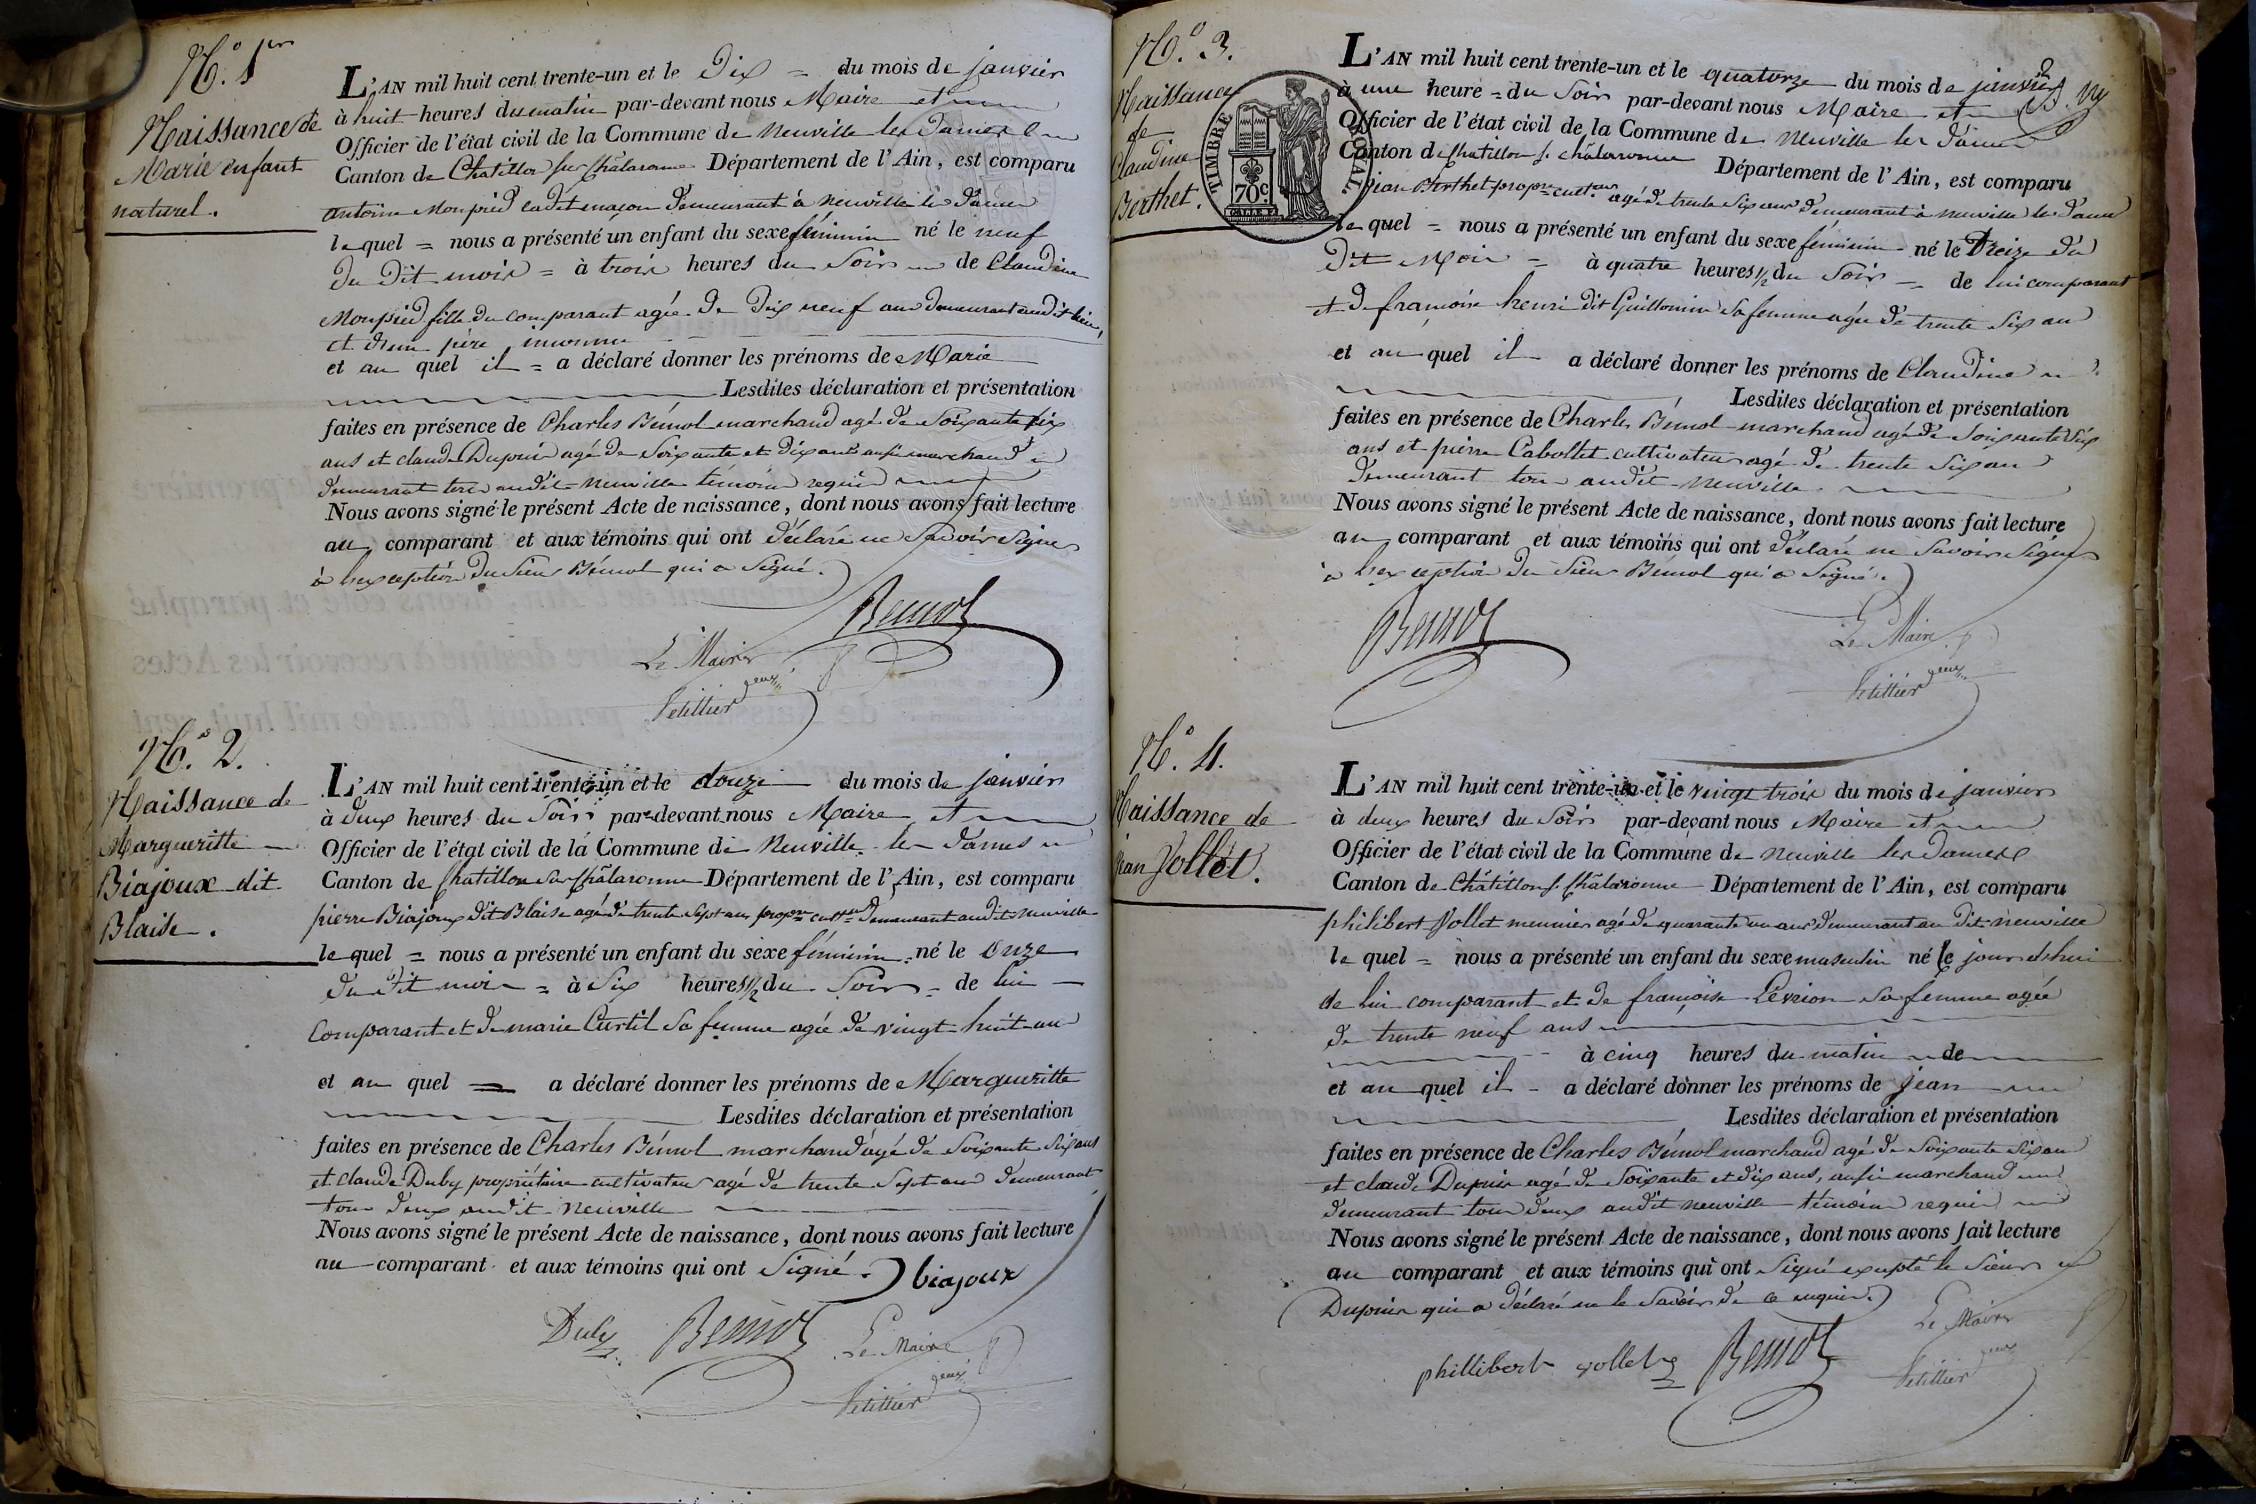 N.º 1er
Naissance de
Marie enfant
naturel.
L'AN mil huit cent trente-un et le Dix = du mois de janvier
à huit heures du matin par-devant nous Maire et
Officier de l'état civil de la Commune de Neuville les Dames
Canton de Chatillon sur Châlaronne Département de l'Ain, est comparu
antoine Monpied cadet maçon demeurant à neuville les dames
le quel = nous a présenté un enfant du sexe féminin né le neuf
du dit mois = à trois heures du soir de Claudine
Monpied fille du comparant agée de dix neuf ans demeurant audit lieu,
et d'un père inconnu
et au quel il = a déclaré donner les prénoms de Marie
Lesdites déclaration et présentation
faites en présence de Charles Bémol marchand agé de soixante six
ans et claude Dupuis agé de soixante et dix ans aussi marchand
demeurant tous audit neuville témoins requis
Nous avons signé le présent Acte de naissance, dont nous avons fait lecture
au comparant et aux témoins qui ont déclaré ne savoir signer
à l'exception du sieur Bémol qui a signé.
Bemol
Le Maire
N.º 2.
Naissance de
Margueritte
Biajoux dit
Blaise.
L'AN mil huit cent trente-un et le douze du mois de janvier
à deux heures du soir par-devant nous Maire et
Officier de l'état civil de la Commune de Neuville les Dames
Canton de Chatillon sur Châlaronne Département de l'Ain, est comparu
pierre Biajoux dit Blaise agé de trente sept ans propre cultr demeurant audit neuville
le quel = nous a présenté un enfant du sexe féminin né le onze
du dit mois = à six heures 1/2 du soir = de lui
comparant et de marie Curtil sa femme agée de vingt huit ans
et au quel = a déclaré donner les prénoms de Margueritte
Lesdites déclaration et présentation
faites en présence de Charles Bémol marchand agé de soixante six ans
et claude Duby propriétaire cultivateur agé de trente sept ans demeurant
tous deux audit neuville
Nous avons signé le présent Acte de naissance, dont nous avons fait lecture
au comparant et aux témoins qui ont signé. biajoux
Duby Bemol Le Maire
N.º 3.
Naissance
de
Claudine
Berthet.
TIMBRE ROYAL
70c.
L'AN mil huit cent trente-un et le quatorze du mois de janvier
à une heure = du soir par-devant nous Maire et
Officier de l'état civil de la Commune de neuville les dames
Canton de Chatillon s. châlaronne Département de l'Ain, est comparu
jean Berthet propre cultr agé de trente six ans demeurant à neuville les dames
le quel = nous a présenté un enfant du sexe féminin né le treize du
dit mois = à quatre heures 1/2 du soir = de lui comparant
et de françoise henri dit Guillomin sa femme agée de trente six ans
et au quel il a déclaré donner les prénoms de Claudine
Lesdites déclaration et présentation
faites en présence de Charles Bémol marchand agé de soixante six
ans et pierre Cabollet cultivateur agé de trente six ans
demeurant tous audit neuville.
Nous avons signé le présent Acte de naissance, dont nous avons fait lecture
au comparant et aux témoins qui ont déclaré ne savoir signer
à l'exception du sieur Bémol qui a signé.
Bemol
Le Maire
N.º 4.
Naissance de
jean Jollet.
L'AN mil huit cent trente-un et le vingt trois du mois de janvier
à deux heures du soir par-devant nous Maire et
Officier de l'état civil de la Commune de neuville les dames
Canton de Châtillon s. Châlaronne Département de l'Ain, est comparu
philibert Jollet meunier agé de quarante un ans demeurant au dit neuville
le quel = nous a présenté un enfant du sexe masculin né le jour d'hui
de lui comparant et de françoise Levrion sa femme agée
de trente neuf ans
à cinq heures du matin de
et au quel il a déclaré donner les prénoms de jean
Lesdites déclaration et présentation
faites en présence de Charles Bémol marchand agé de soixante six ans
et claude Dupuis agé de soixante et dix ans, aussi marchand
demeurant tous deux audit neuville témoins requis
Nous avons signé le présent Acte de naissance, dont nous avons fait lecture
au comparant et aux témoins qui ont signé excepté le sieur
Dupuis qui a déclaré ne le savoir de ce requis.
phillibert jollet Bemol Le Maire